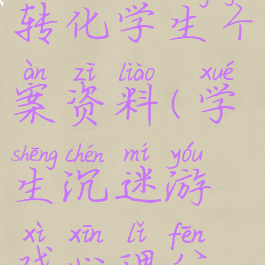 转化学生个
àn zī liào xué
案资料(学
shēng chén mí yóu
生沉迷游
xì xīn lǐ fēn
戏心理分